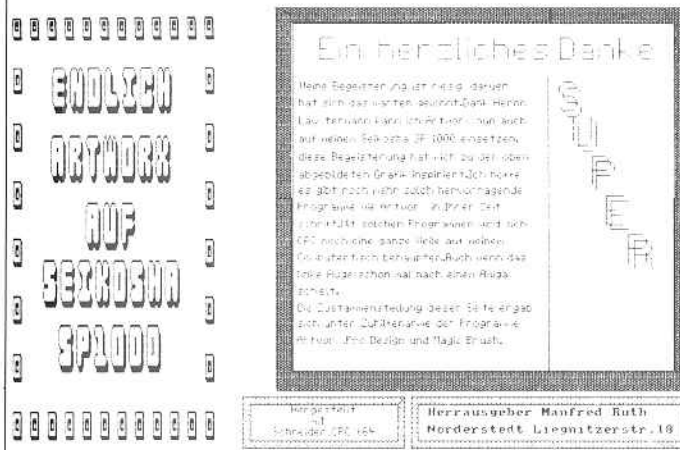 ENDLICH
ARTWORX
AUF
SEIKOSHA
SP1000
Ein herzliches Danke
Meine Begeisterung ist riesig, darum
hat sich das warten gelohnt. Dank Herrn
kann ich Artworx nun auch
auf meinen Seikosha SP 1000 einsetzen.
diese Begeisterung hat mich zu der oben
abgebildeten Grafik inspiriert. Ich hoffe
es gibt noch mehr solch hervorragende
Programme wie Artworx in Ihrer Zeit
schrift. Mit solchen Programmen wird sich
CPC noch eine ganze Weile auf meinem
Computertisch behaupten. Auch wenn das
linke Auge schon mal nach einen Amiga
schielt.
Die Zusammenstellung dieser Seite ergab
sich unter Zuhilfenahme der Programme
Artworx, Design und Magic Brush.
SUPER
Hergestellt
mit
Schneider CPC 464
Herrausgeber Manfred Ruth
Norderstedt Liegnitzerstr.18